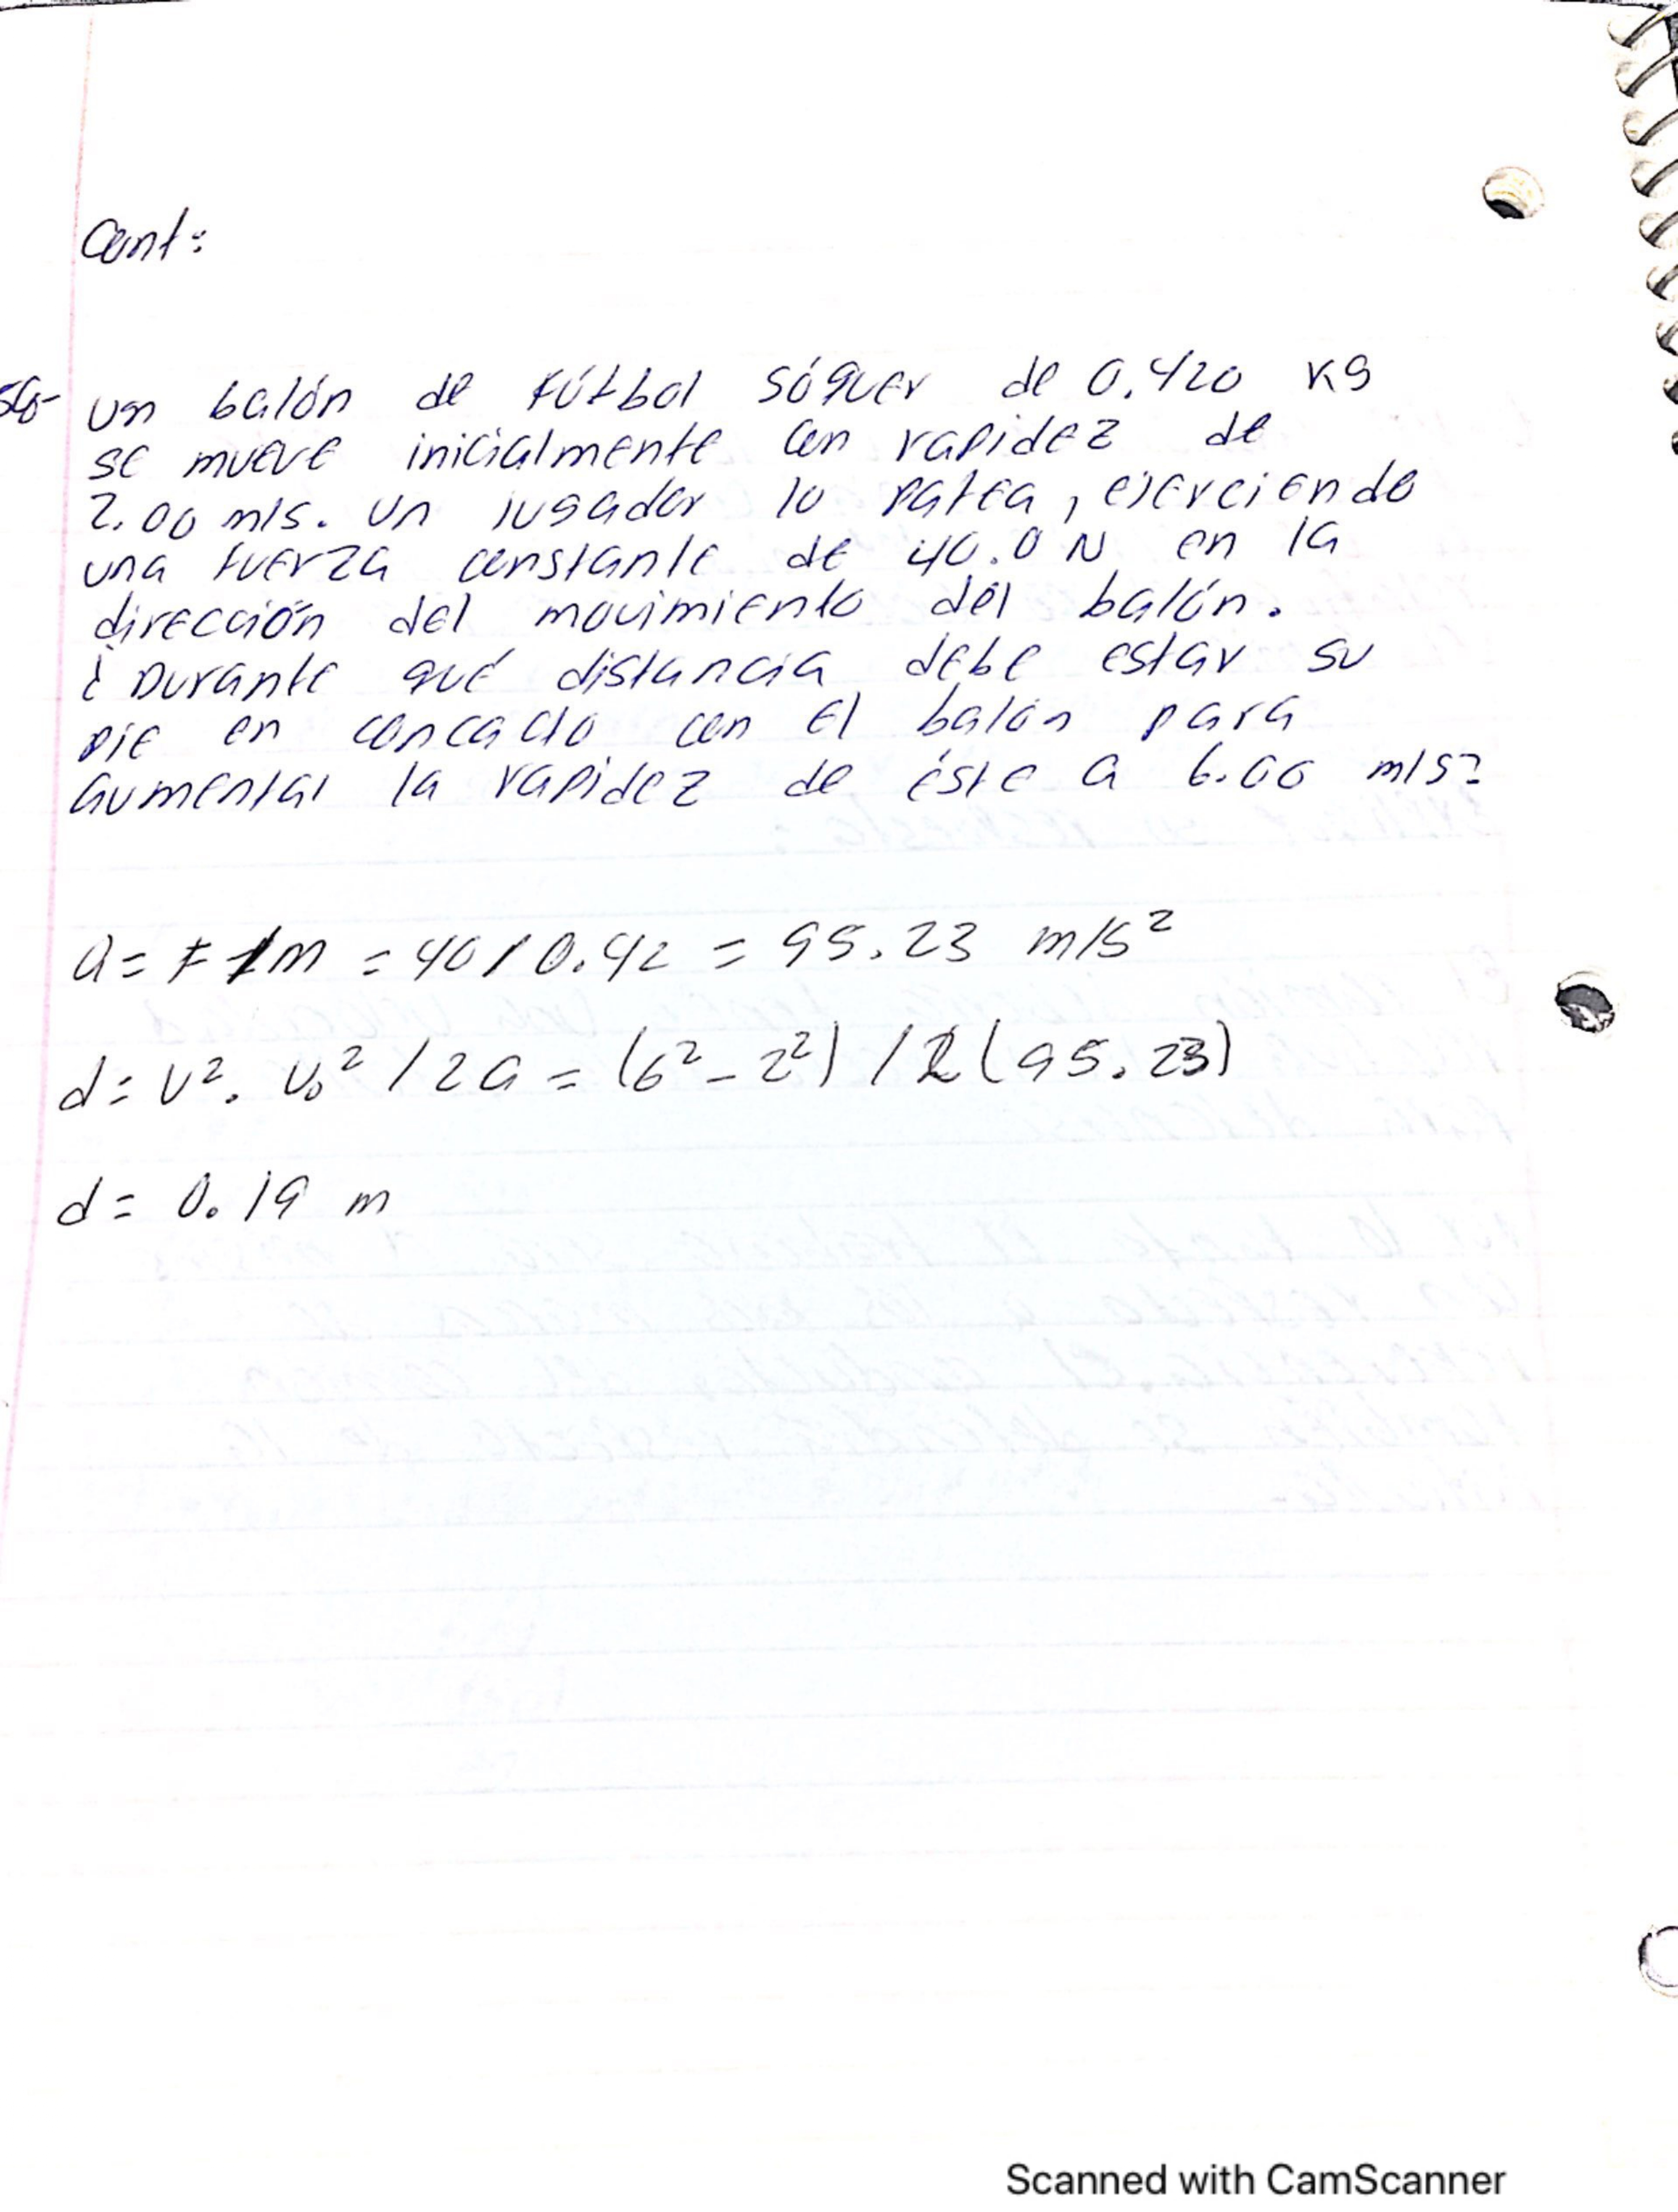 Cont:
56- un balón de fútbol sóquer de 0.420 kg
se mueve inicialmente con rapidez de
2.00 m/s. un jugador lo patea, ejerciendo
una fuerza constante de 40.0 N en la
dirección del movimiento del balón.
¿Durante qué distancia debe estar su
pie en concacto con el balón para
aumentar la rapidez de éste a 6.00 m/s?
a = F/m = 40/0.42 = 95.23 m/s²
d = v². v₀² / 2a = (6² - 2²) / 2(95.23)
d = 0.19 m
Scanned with CamScanner